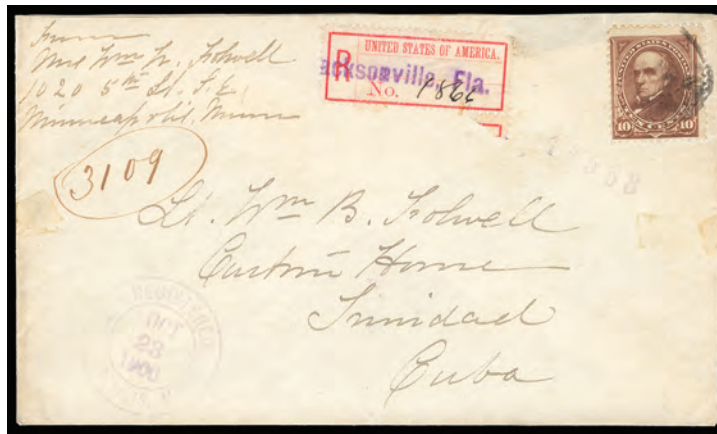 From
Mrs Wm W. Folwell
1020 5th St. S.E.
Minneapolis, Minn
UNITED STATES OF AMERICA.
R
Jacksonville, Fla.
No. 9866
10 10
3109
Lt. Wm B. Folwell
Custom House
Trinidad
Cuba
REGISTERED
OCT
23
1900